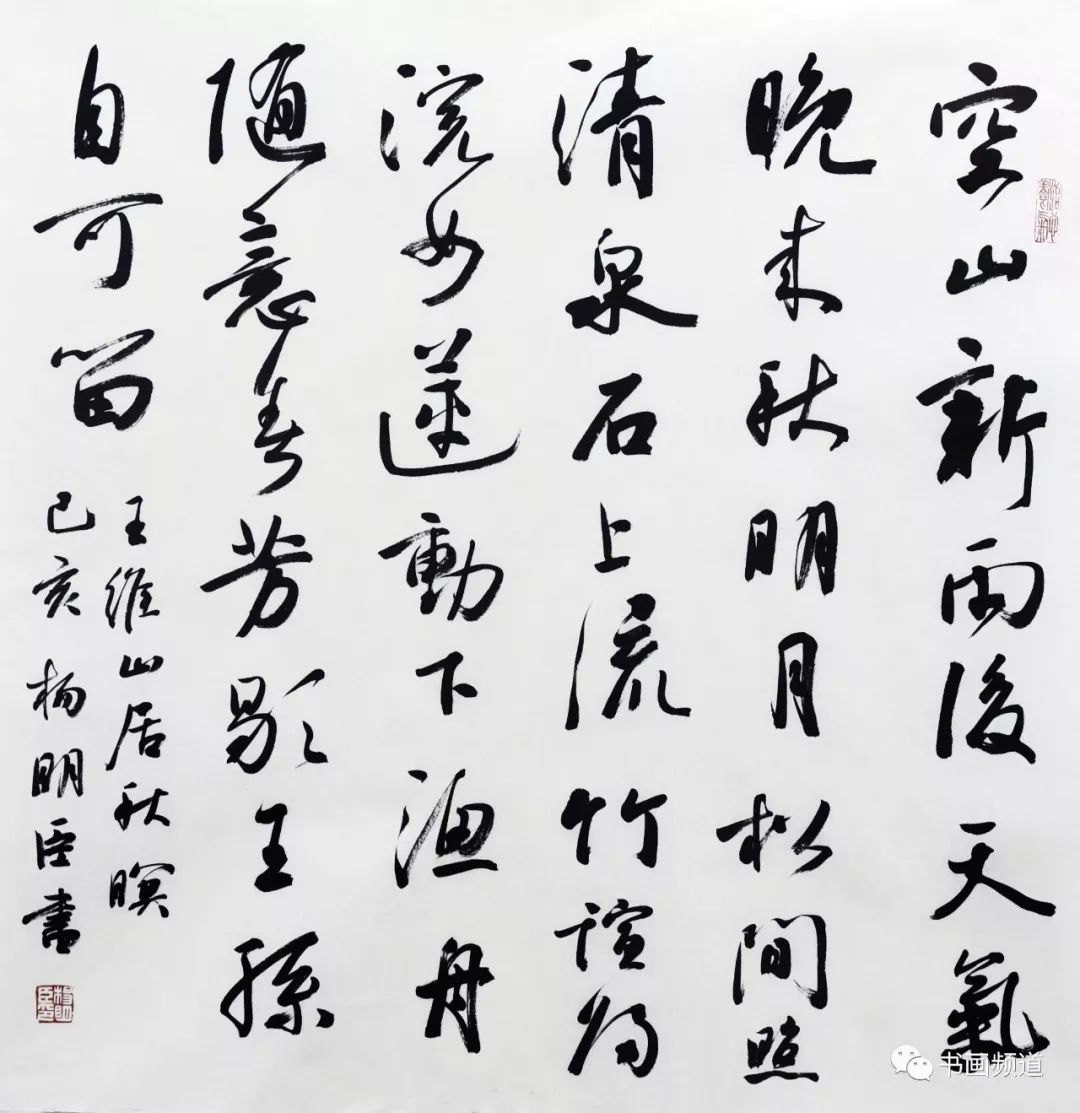 空山新雨後天氣
晚来秋明月松間照
清泉石上流竹喧歸
浣女蓮動下漁舟
随意春芳歇王孫
自可留
王維山居秋暝
己亥 楊明臣書
书画频道